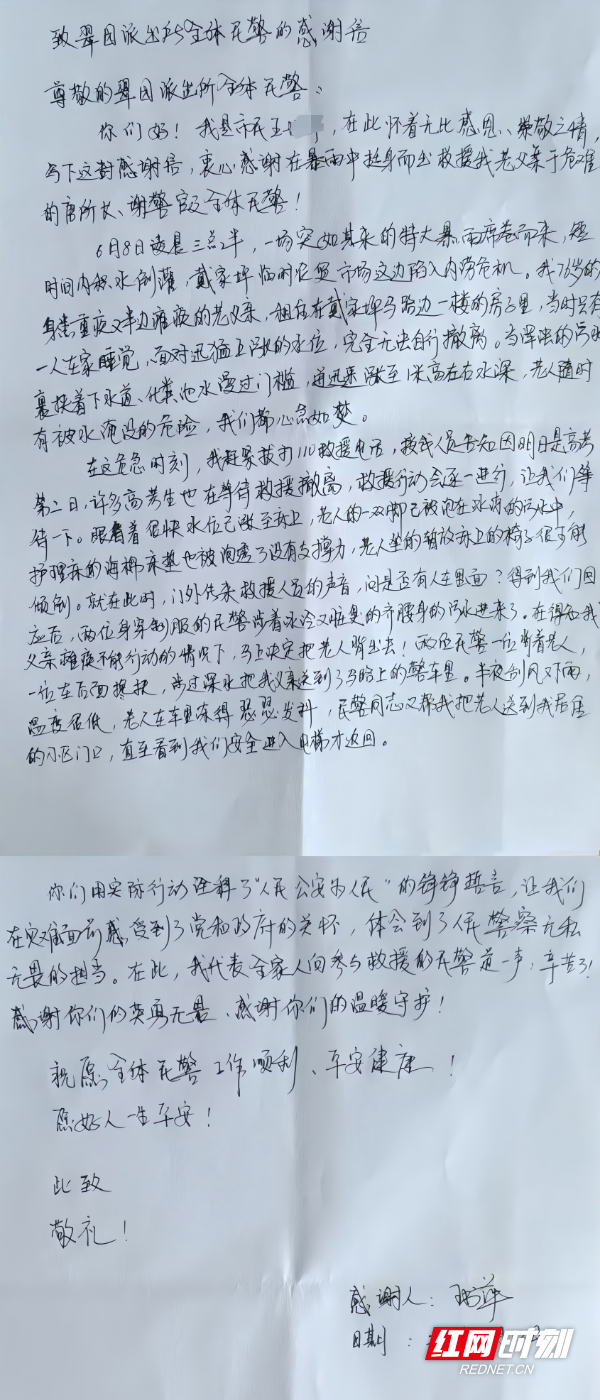 致翠园派出所全体民警的感谢信
尊敬的翠园派出所全体民警：
你们好！我是市民王，在此怀着无比感恩、崇敬之情，
写下这封感谢信，衷心感谢在暴雨中挺身而出救援我老父亲于危难
的唐所长、谢警官及全体民警！
6月8日凌晨三点半，一场突如其来的特大暴雨席卷而来，短
时间内积水倒灌，戴家坪临时便民市场这边陷入内涝危机。我76岁的
身患重疾又半边瘫痪的老父亲，租住在戴家坪马路边一楼的房子里，当时只有
一人在家睡觉，面对迅猛上涨的水位，完全无法自行撤离。当浑浊的污水
裹挟着下水道、化粪池水漫过门槛，并迅速涨至1米高左右水深，老人随时
有被水淹没的危险，我们都心急如焚。
在这危急时刻，我赶紧拨打110救援电话，接线人员告知因明日是高考
第二日，许多高考生也在等待救援撤离，救援行动会逐一进行，让我们等
待一下。眼看着很快水位已涨至床上，老人的一双脚已被泡在冰凉的污水中，
护理床的海棉床垫也被泡透了没有支撑力，老人坐的转放床上的椅子很可能
倾倒。就在此时，门外传来救援人员的声音，问是否有人在里面？得到我们回
应后，两位身穿制服的民警淌着冰冷又恶臭的齐腰身的污水进来了。在得知我
父亲瘫痪不能行动的情况下，马上决定把老人背出去！两位民警一位背着老人，
一位在后面搀扶，淌过深水把我父亲送到了马路上的警车里。半夜刮风又下雨，
温度很低，老人在车里冻得瑟瑟发抖，民警同志又帮我把老人送到我居住
的小区门口，直至看到我们安全进入电梯才返回。
你们用实际行动诠释了“人民公安为人民”的铮铮誓言，让我们
在灾难面前感受到了党和政府的关怀，体会到了人民警察无私
无畏的担当。在此，我代表全家人向参与救援的民警道一声：辛苦了！
感谢你们的英勇无畏、感谢你们的温暖守护！
祝愿全体民警工作顺利、平安健康！
愿好人一生平安！
此致
敬礼！
感谢人：
日期：
红网时刻
REDNET.CN